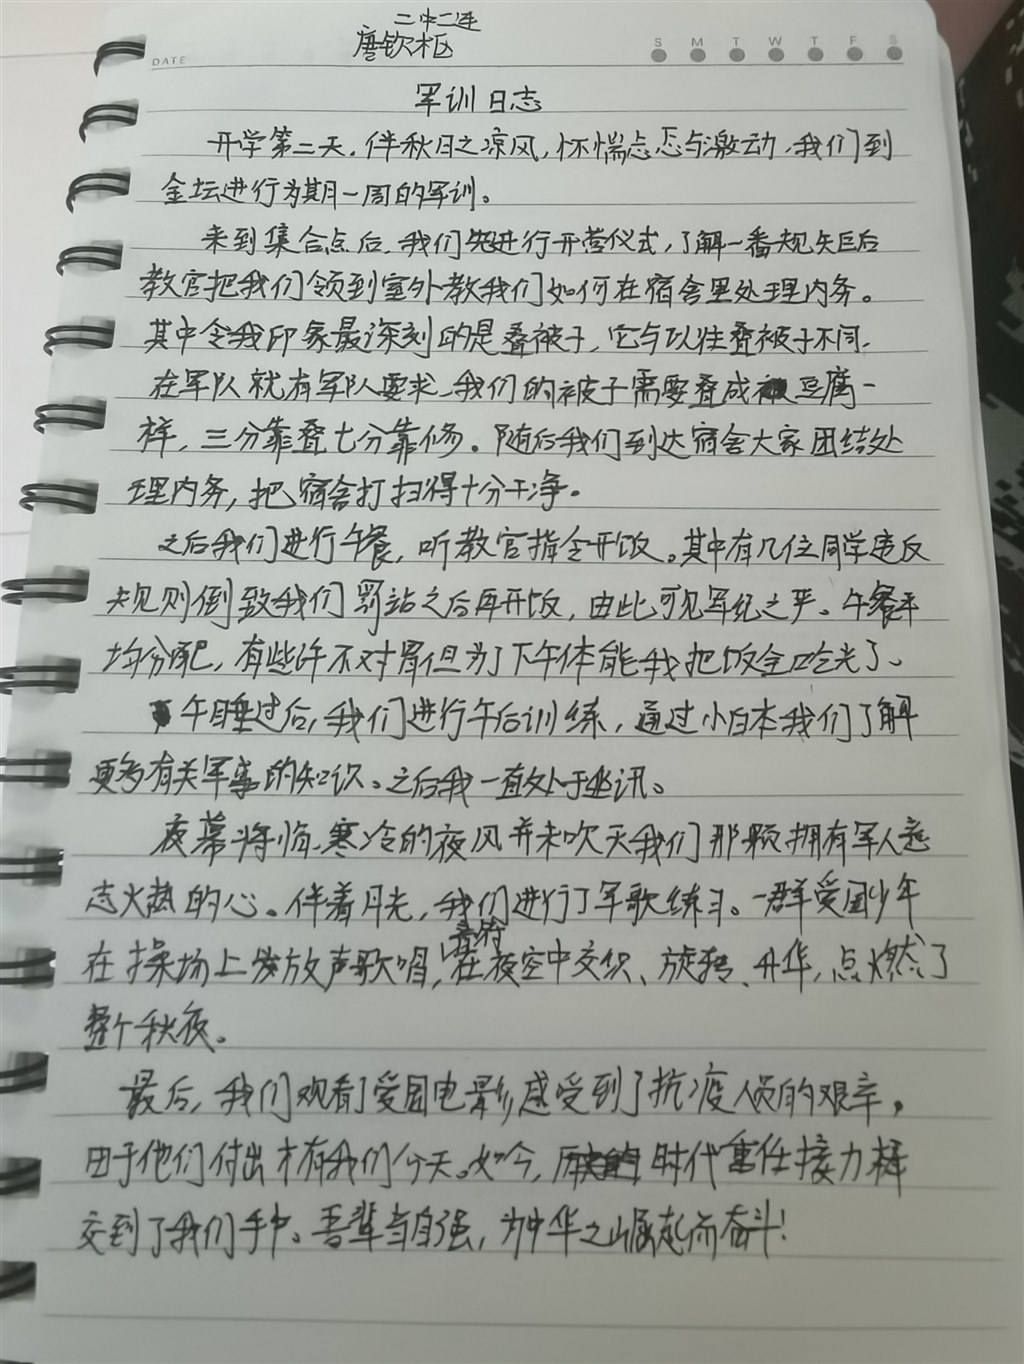 二中二连
唐钦枢
DATE
S M T W T F S
军训日志
开学第二天，伴秋日之凉风，怀惴忐忑与激动，我们到
金坛进行为期一周的军训。
来到集合点后，我们先进行开营仪式，了解一番规矩后
教官把我们领到室外教我们如何在宿舍里处理内务。
其中令我印象最深刻的是叠被子，它与以往叠被子不同，
在军队就有军队要求，我们的被子需要叠成豆腐一
样，三分靠叠七分靠修。随后我们到达宿舍大家团结处
理内务，把宿舍打扫得十分干净。
之后我们进行午餐，听教官指令开饭。其中有几位同学违反
规则倒致我们罚站之后再开饭，由此可见军纪之严。午餐平
均分配，有些许不对胃但为了下午体能我把饭全吃光了。
午睡过后，我们进行午后训练，通过小白本我们了解
更多有关军事的知识。之后我一直处于坐讯。
夜幕将临，寒冷的夜风并未吹灭我们那颗拥有军人意
志火热的心。伴着月光，我们进行了军歌练习。一群爱国少年
在操场上发放声歌唱，音符在夜空中交织、旋转、升华，点燃了
整个秋夜。
最后，我们观看了爱国电影，感受到了抗疫人员的艰辛，
由于他们付出才有我们今天。如今，时代重任接力棒
交到了我们手中。吾辈当自强，为中华之崛起而奋斗！